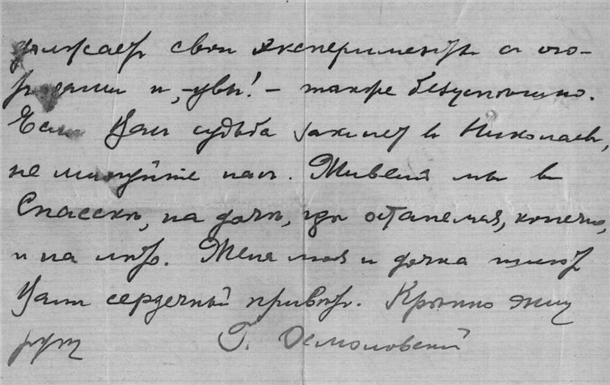 должает свои эксперименты с ого-
родами и, - увы! - также безуспешно.
Если судьба закинет в Николаев,
не минуйте нас. Живем мы в
Спасске, на даче, где останемся, конечно,
и на лето. Жена моя и дочка шлют
Вам сердечный привет. Крепко жму
руку Г. Осмоловский